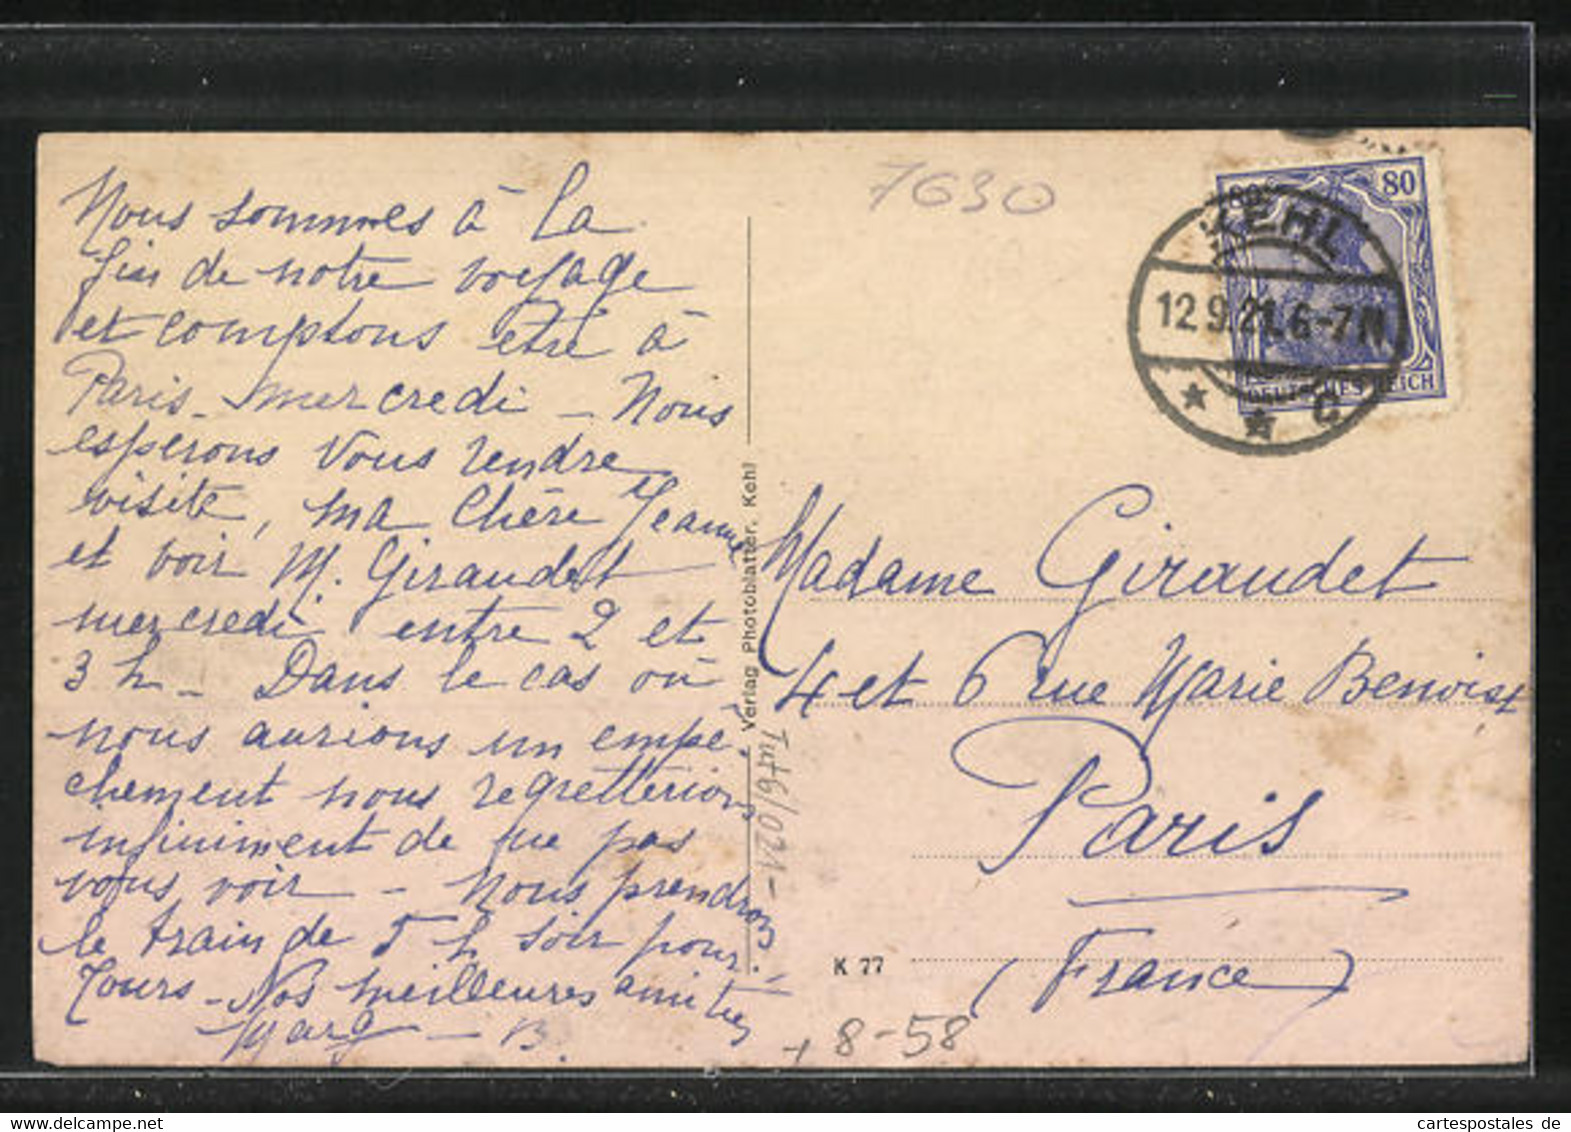 Nous sommes à la
fin de notre voyage
et comptons être à
Paris - mercredi - Nous
esperons vous rendre
visite, ma chère Jeanne
et voir M. Giraudet
mercredi entre 2 et
3 h - Dans le cas où
nous aurions un empê-
chement nous regretterions
infiniment de ne pas
vous voir - Nous prendrons
le train de 5 h soir pour
Tours - Nos meilleures amitiés
Marg - B.
Verlag Photoblätter, Kehl
7630
80
80
DEUTSCHES REICH
KEHL
12.9.21.6-7N
* * C
Madame Giraudet
4 et 6 rue Marie Benoist
Paris
(France)
K 77
+ 8-58
cartespostales de